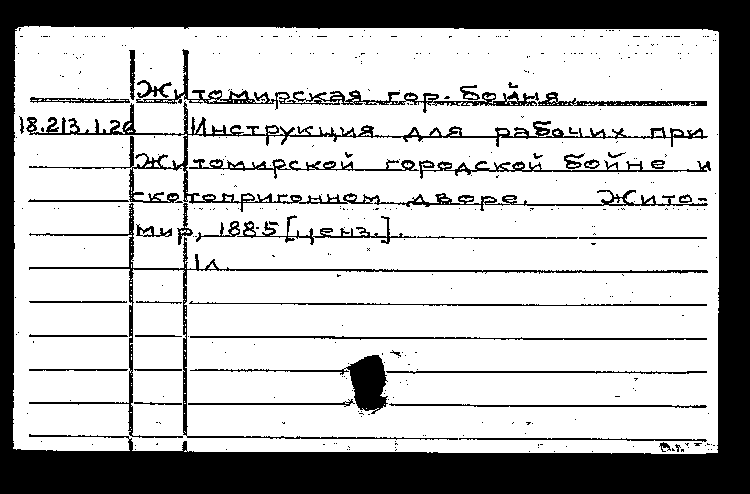 Житомирская гор. бойня.
18.213.1.26 Инструкция для рабочих при
Житомирской городской бойне и
скотопригонном дворе. Жито=
мир, 1885 [ценз.].
1 л.